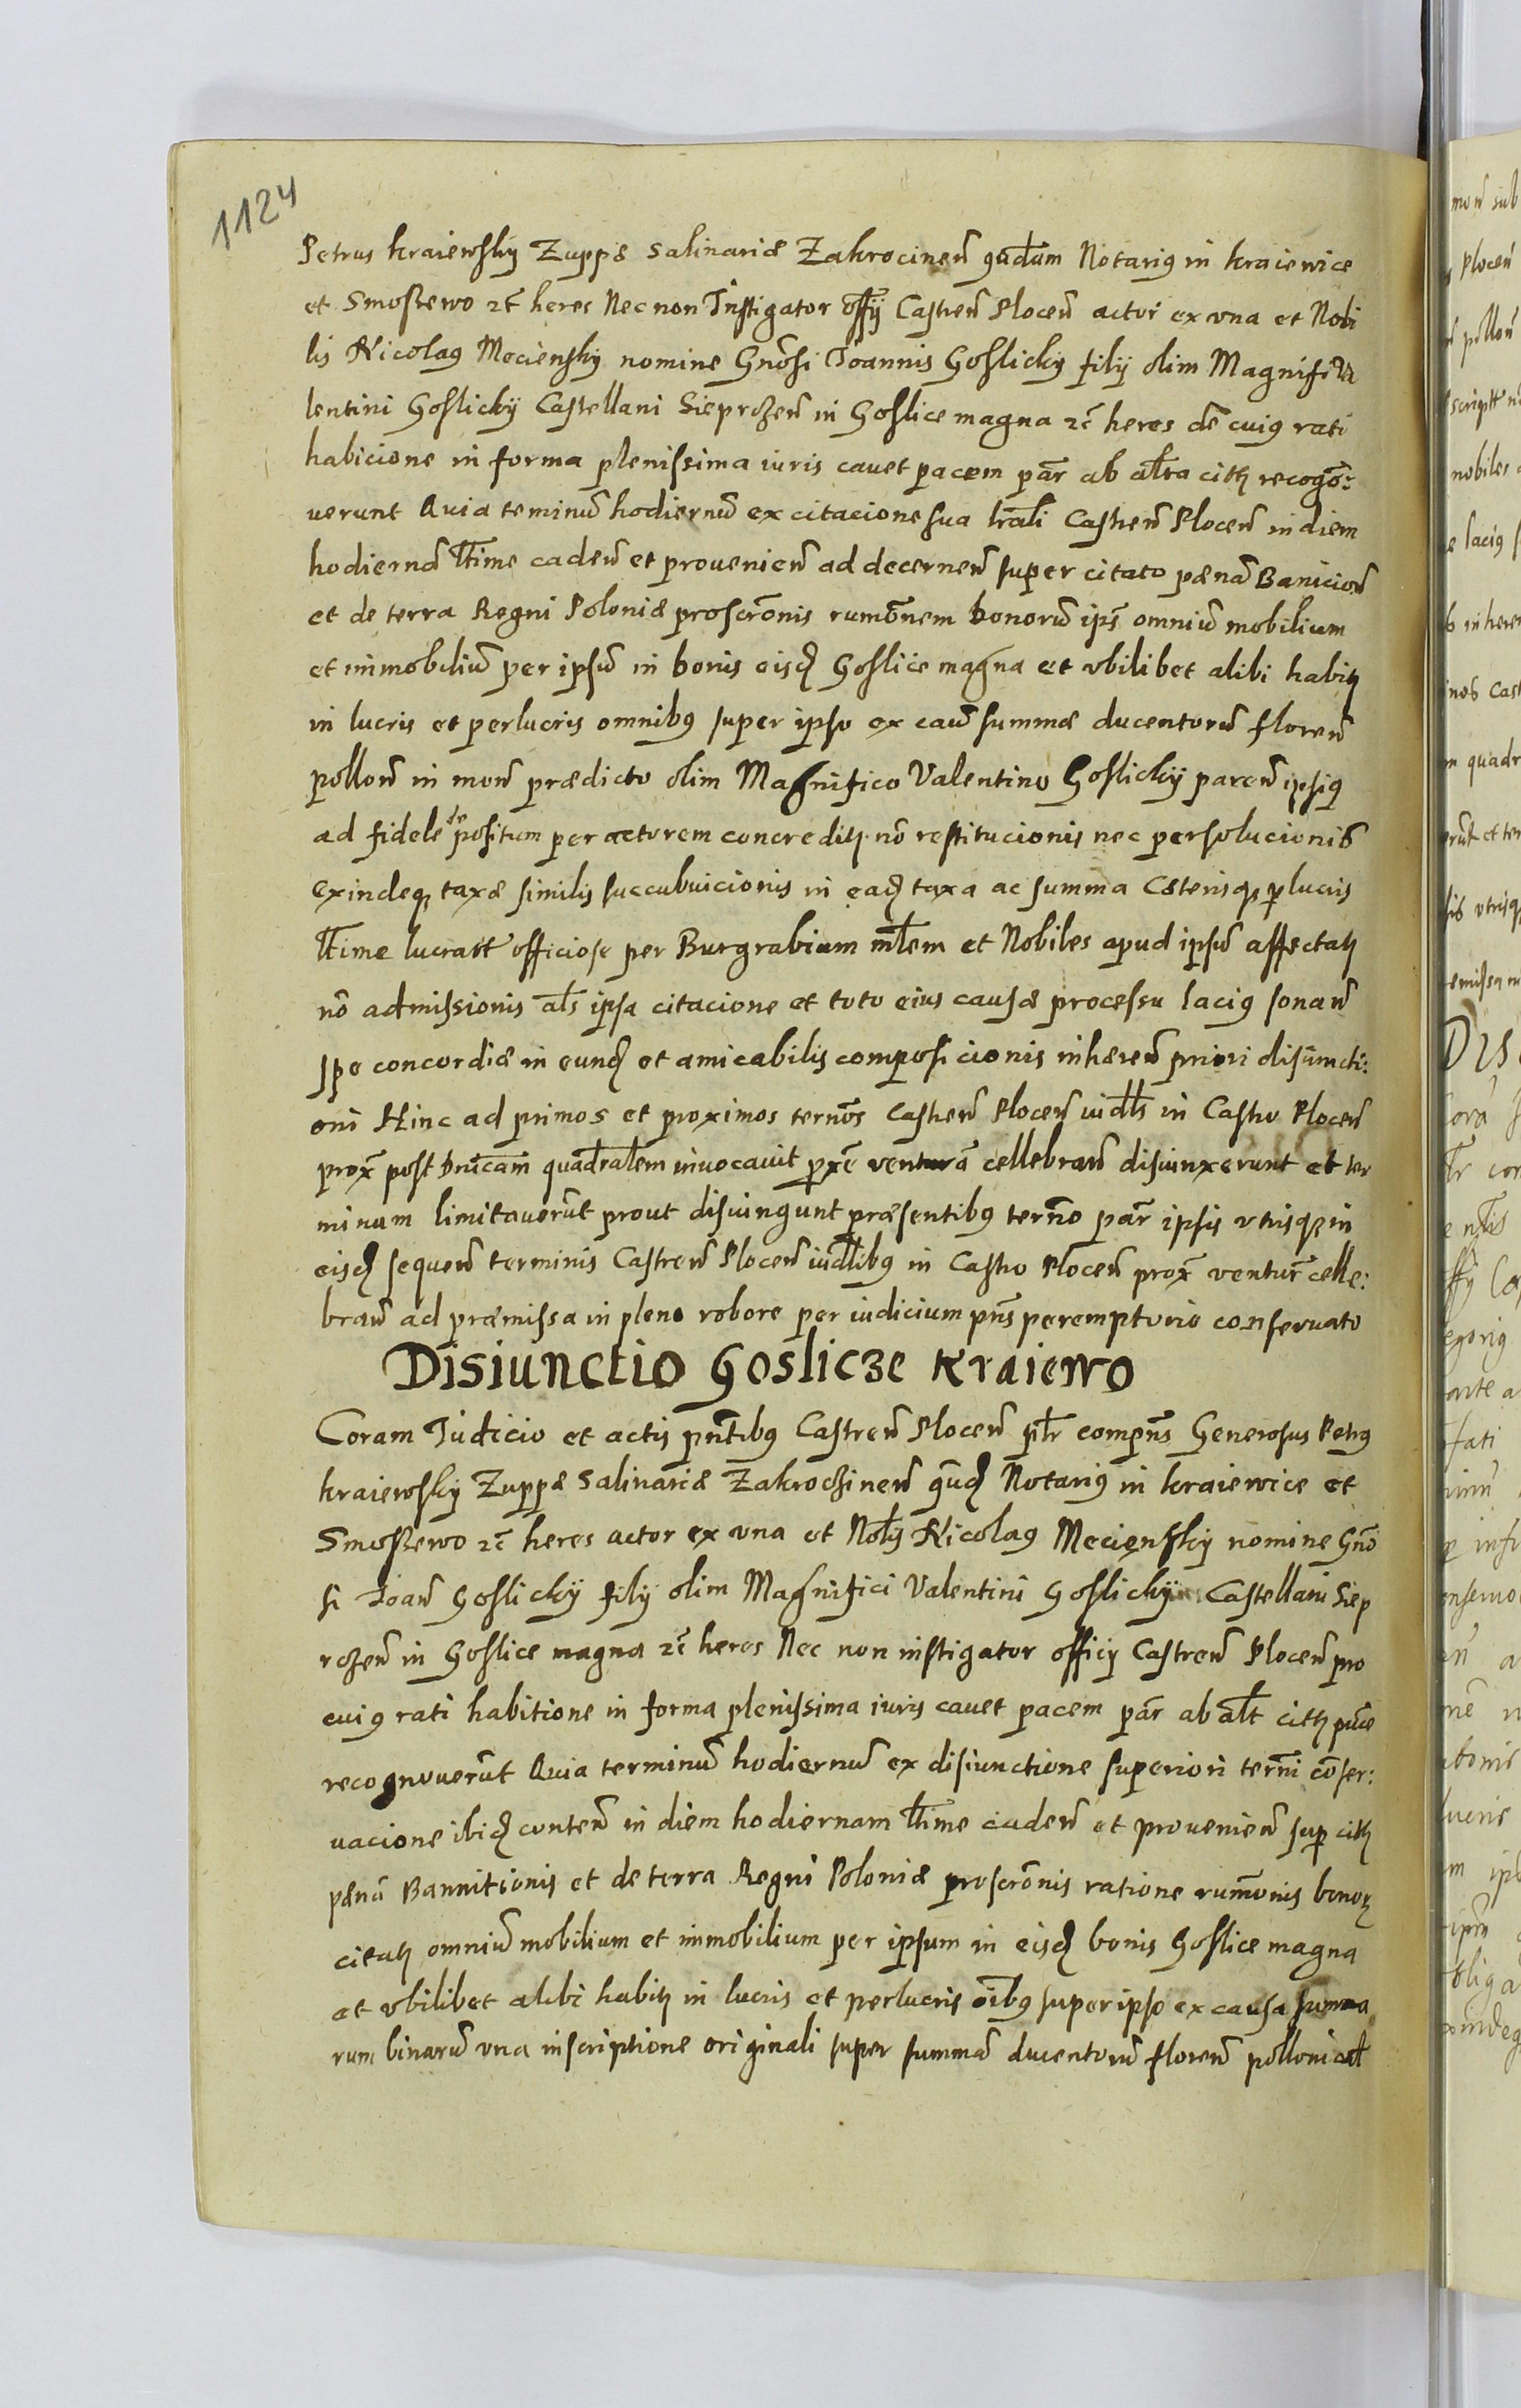 1124
Petrus Kraiewsky Zuppæ salinariæ Zakrocinen̄ quādam Notariꝰ in Kraiewice
et Smoszewo ꝛc̄ heres Nec non Instigator offÿ Castren̄ Plocen̄ actor ex vna et Nobi
lis Nicolaꝰ Meciensky nomine Gnōsi Joannis Goslicky filÿ olim Magnifi Va
lentini Goslickÿ Castellani Sieprczen̄ in Goslice magna ꝛc̄ heres dē cuiꝰ rati
habicione in forma plenissima iuris cauet pacem par̄ ab alt̄ra citꝫ recogō:
uerunt Quia teminū hodiernū ex citacione sua lr̄ali Castren̄ Plocen̄ in diem
hodiernā lt̄time caden̄ et prouenien̄ ad decernen̄ super citato pænā Banicion̄
et de terra Regni Poloniæ proscrōnis rumōnem bonorū ips̄ omniū mobilium
et immobiliū per ipsū in bonis eisd Goslice magna et vbilibet alibi habitꝫ
in lucris et perlucris omnibꝰ super ipso ex cau̅ summæ ducentorū floren̄
pollon̄ in mon̄ prædicto olim Magnifico Valentino Goslickÿ paren̄ ipsiꝰ
ad fidele depositum per actorem concreditꝫ nō restitucionis nec persolucionis
exindeqꝫ taxæ similis succubuicionis in ead taxa ac summa Cæterisqꝫ ꝑlucris
lt̄time lucrat̄ officiose per Burgrabium ml̄em et Nobiles apud ipsū affectatꝫ
nō admissionis als̄ ipsa citacione et toto eius causæ processu laciꝰ sonan̄
spe concordiæ in eund et amicabilis composicionis inhæren̄ priori disiuncti:
oni Hinc ad primos et proximos termōs Castren̄ Plocen̄ iudl̄s in Castro Plocen̄
prox̄ post Dnīcam quadral̄em inuocauit ꝑxē venturā cellebran̄ disiunxerunt et ter
minum limitauerūt prout disiungunt præsentibꝰ termō par̄ ipsis vtrisqꝫ in
eisd sequen̄ terminis Castren̄ Plocen̄ iudl̄ibꝰ in Castro Plocen̄ prox̄ ventur̄ celle:
bran̄ ad præmissa in pleno robore per iudicium pn̄s peremptorie conseruato
Disiunctio Goslicze Kraiewo
Coram Judicio et actis pn̄tibꝰ Castren̄ Plocen̄ pl̄r compn̄s Generosus Petrꝰ
Kraiewsky Zuppæ salinariæ Zakroczinen̄ qūd Notariꝰ in Kraiewice et
Smoszewo ꝛc̄ heres actor ex vna et Nob̄ Nicolaꝰ Meciensky nomine Gnō
si Joan̄ Goslickÿ filÿ olim Magnifici Valentini Goslickÿ Castellani Siep
rczen̄ in Goslice magna ꝛc̄ heres Nec non instigator officÿ Castren̄ Plocen̄ pro
cuiꝰ rati habitione in forma plenissima iuris cauet pacem par̄ ab alt̄ citꝫ
recognouerūt Quia terminū hodiernū ex disiunctione superiori termī cōser:
uacione ibid conten̄ in diem hodiernam lt̄time caden̄ et prouenien̄ suꝑ citꝫ
pænā Bannitionis et de terra Regni Poloniæ proscrōnis ratione rumōnis bonoꝝ
citatꝫ omniū mobilium et immobilium per ipsum in eisd bonis Goslice magna
et vbilibet alibi habitꝫ in lucris et perlucris oībꝰ super ipso ex causa summa
rum binarū vna inscriptione originali super summā ducentorū floren̄ pollonical̄